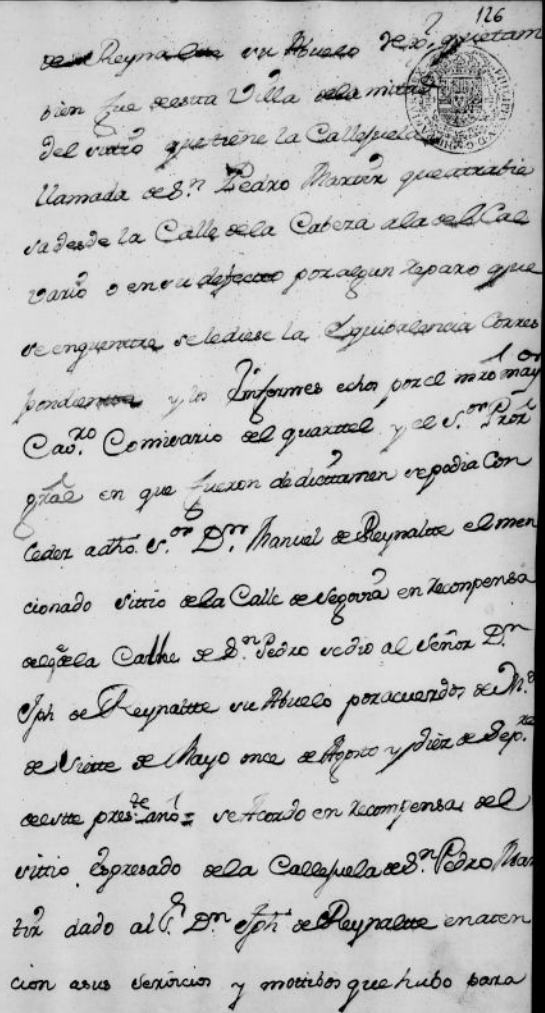 126
de Reynaltte su Abuelo de xp.l q.e tam
bien fue de esta Villa de la mitad
del sittio que tiene la Callejuela
llamada de S.n Pedro Martir que atrabie
sa desde la Calle de la Cabeza a la del Cal
vario o en su defecto por algun reparo que
se enquentre se le diese la Equibalencia Corres
pondiente y los Ynformes echos por el mro may.or
Cav.ro Comisario del quarttel y el S.or Pror
gral en que fueron de dicttamen se podia Con
ceder a dho S.or D.n Manuel de Reynaltte el men
cionado sittio de la Calle de Segovia en recompensa
del q.e de la Calle de S.n Pedro se dio al Señor D.n
Jph de Reynaltte su Abuelo por acuerdos de M.d
de Siette de Mayo once de Agosto y diez de Sep.re
de este pres.te año = se Acordo en recompensa del
sittio Expresado de la Callejuela de S.n Pedro Mar
tir dado al S.r D.n Jph de Reynaltte en aten
cion a sus servicios y mottibos que hubo para